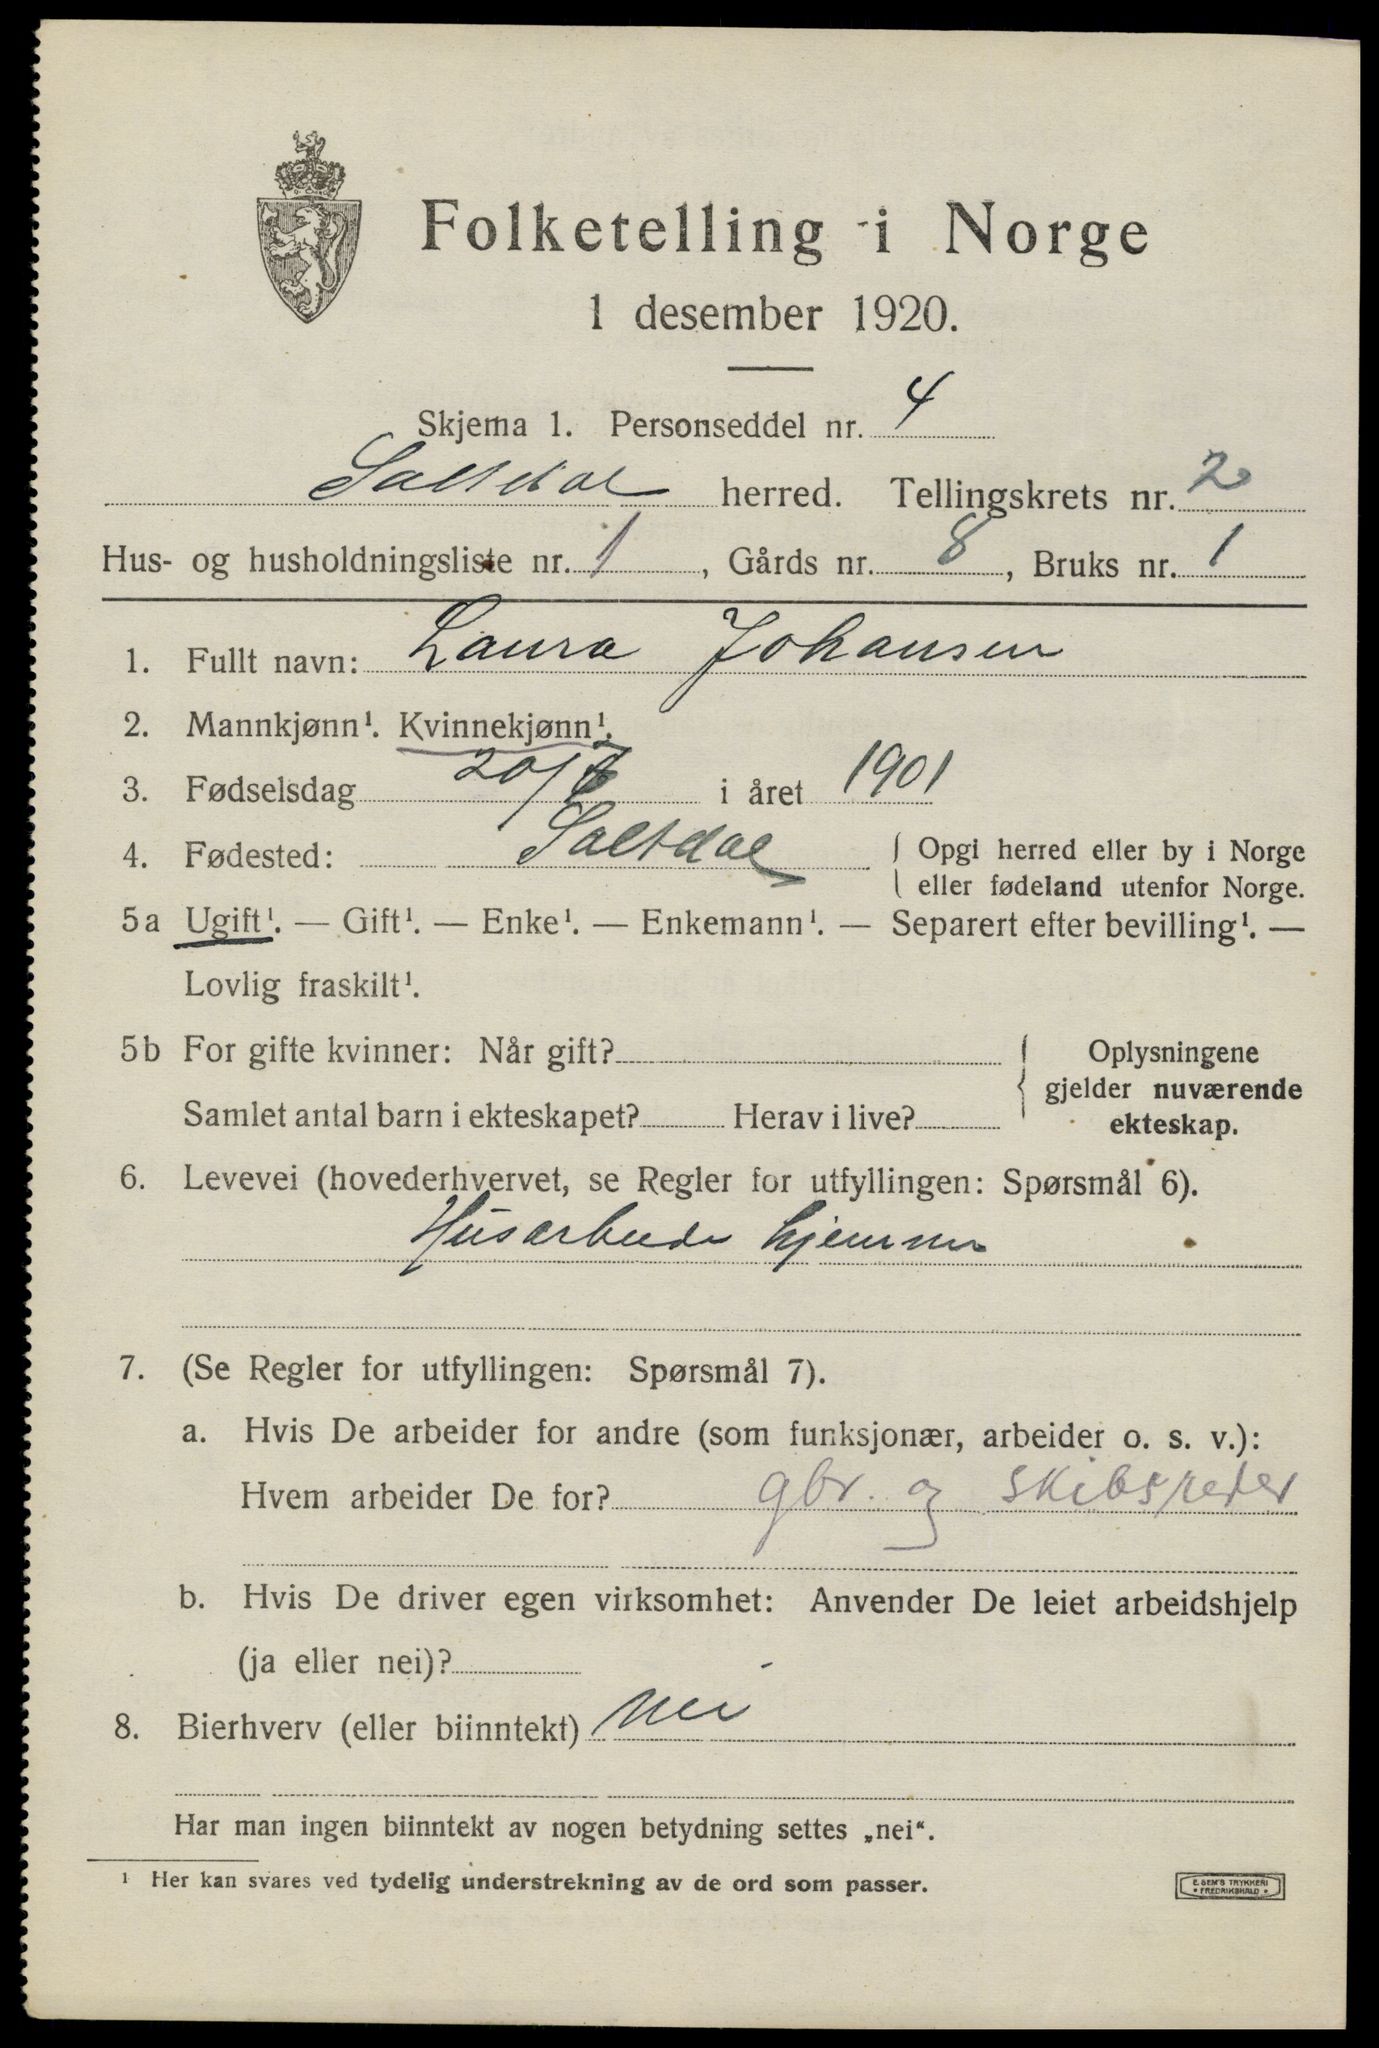 Folketelling i Norge
1 desember 1920.
Skjema 1. Personseddel nr. 4
Saltdal herred. Tellingskrets nr. 2
Hus- og husholdningsliste nr. 1, Gårds nr. 8, Bruks nr. 1
1. Fullt navn: Laura Johansen
2. Mannkjønn¹. Kvinnekjønn¹.
3. Fødselsdag 20/7 i året 1901
4. Fødested: Saltdal { Opgi herred eller by i Norge
eller fødeland utenfor Norge.
5a Ugift¹. — Gift¹. — Enke¹. — Enkemann¹. — Separert efter bevilling¹. —
Lovlig fraskilt¹.
5b For gifte kvinner: Når gift? { Oplysningene
gjelder nuværende
Samlet antal barn i ekteskapet? Herav i live? ekteskap.
6. Levevei (hovederhvervet, se Regler for utfyllingen: Spørsmål 6).
Husarbeide hjemme
7. (Se Regler for utfyllingen: Spørsmål 7).
a. Hvis De arbeider for andre (som funksjonær, arbeider o. s. v.):
Hvem arbeider De for? gbr. og skibsreder
b. Hvis De driver egen virksomhet: Anvender De leiet arbeidshjelp
(ja eller nei)?
8. Bierhverv (eller biinntekt) nei
Har man ingen biinntekt av nogen betydning settes „nei“.
¹ Her kan svares ved tydelig understrekning av de ord som passer.
E. SEM'S TRYKKERI
• FREDRIKSHALD •